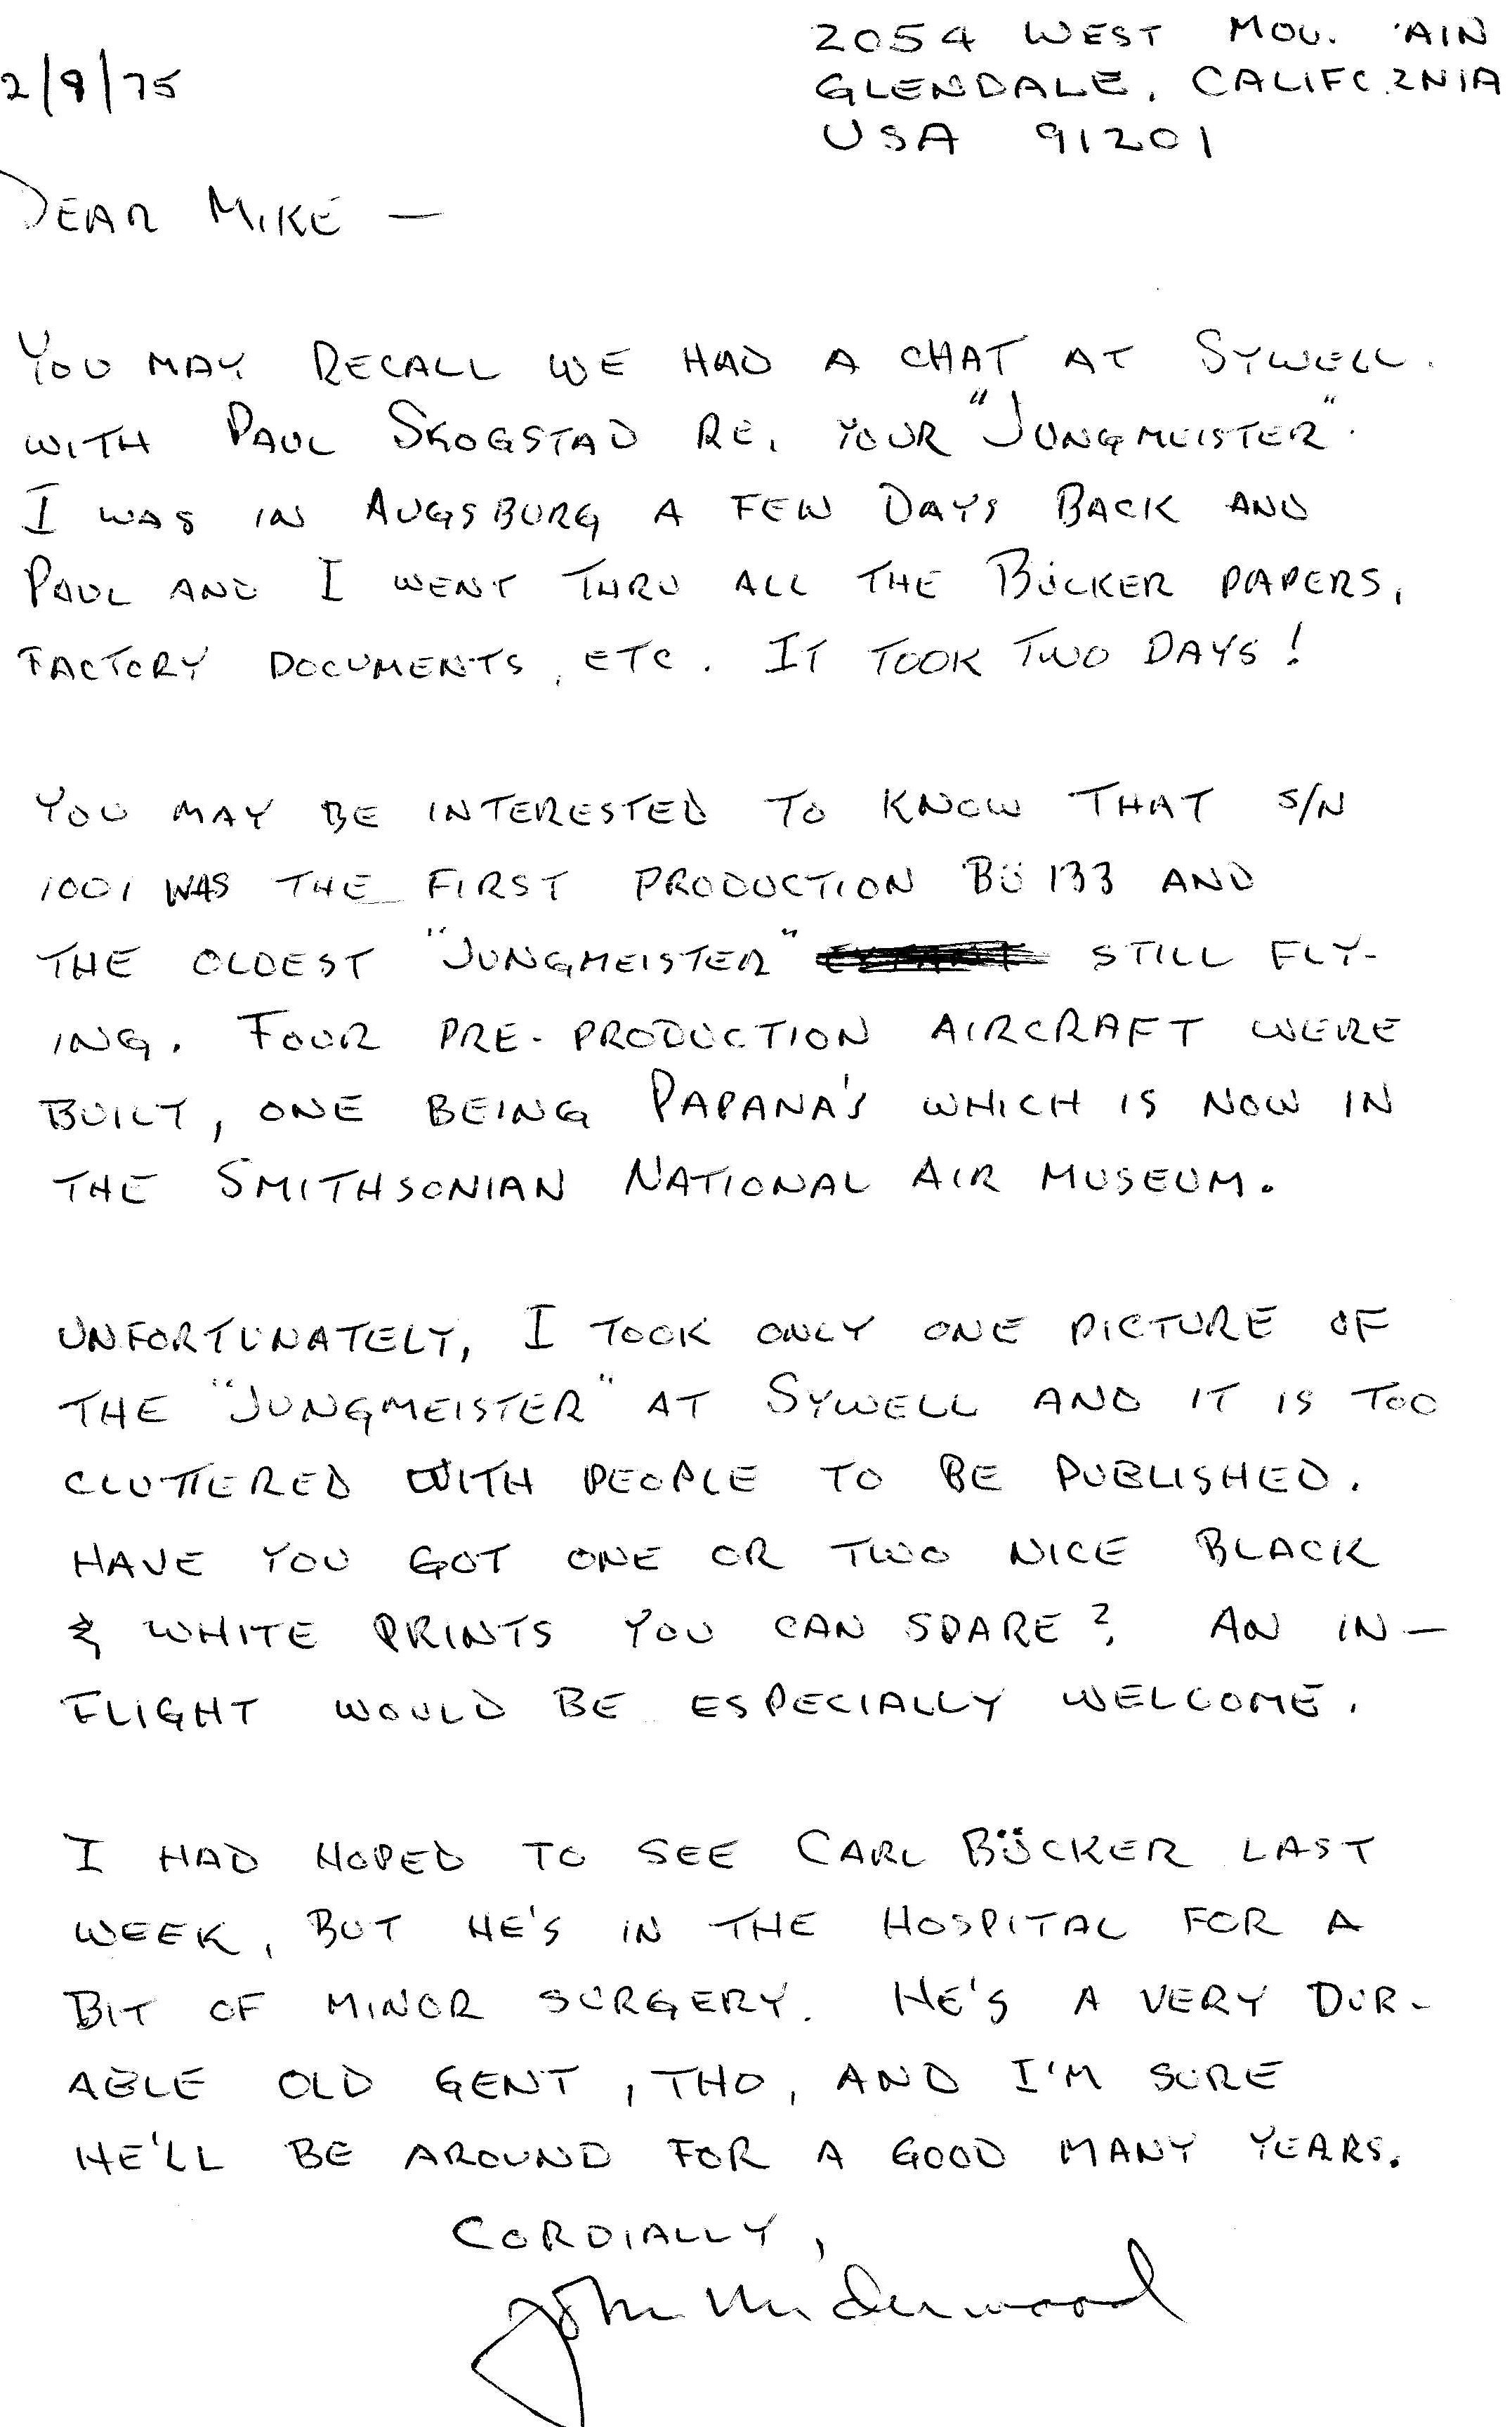 2054 WEST MOU. 'AIN
2/9/75
GLENDALE, CALIFORNIA
USA 91201
DEAR MIKE —
YOU MAY RECALL WE HAD A CHAT AT SYWELL.
WITH PAUL SKOGSTAD RE. YOUR "JUNGMEISTER".
I WAS IN AUGSBURG A FEW DAYS BACK AND
PAUL AND I WENT THRU ALL THE BÜCKER PAPERS,
FACTORY DOCUMENTS, ETC. IT TOOK TWO DAYS!
YOU MAY BE INTERESTED TO KNOW THAT S/N
1001 WAS THE FIRST PRODUCTION BÜ 133 AND
THE OLDEST "JUNGMEISTER" STILL FLY-
ING. FOUR PRE-PRODUCTION AIRCRAFT WERE
BUILT, ONE BEING PAPANA'S WHICH IS NOW IN
THE SMITHSONIAN NATIONAL AIR MUSEUM.
UNFORTUNATELY, I TOOK ONLY ONE PICTURE OF
THE "JUNGMEISTER" AT SYWELL AND IT IS TOO
CLUTTERED WITH PEOPLE TO BE PUBLISHED.
HAVE YOU GOT ONE OR TWO NICE BLACK
& WHITE PRINTS YOU CAN SPARE? AN IN-
FLIGHT WOULD BE ESPECIALLY WELCOME.
I HAD HOPED TO SEE CARL BÜCKER LAST
WEEK, BUT HE'S IN THE HOSPITAL FOR A
BIT OF MINOR SURGERY. HE'S A VERY DUR-
ABLE OLD GENT, THO, AND I'M SURE
HE'LL BE AROUND FOR A GOOD MANY YEARS.
CORDIALLY,
John Underwood